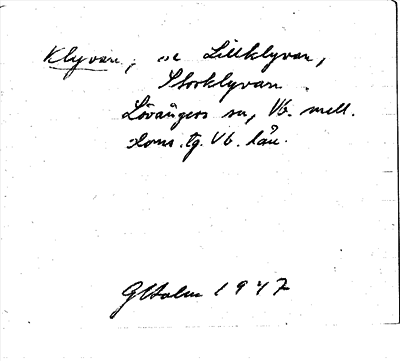 Klyvan, se Lillklyvan,
Storklyvan.
Lövångers sn, Vb. mell.
doms.tg. Vb. län.
GHolm 1947